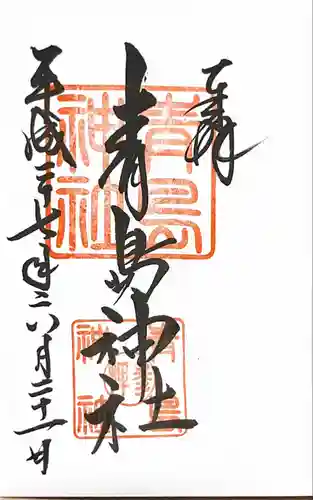 奉拝
青島神社
平成二十七年六月二十一日
青島
神社